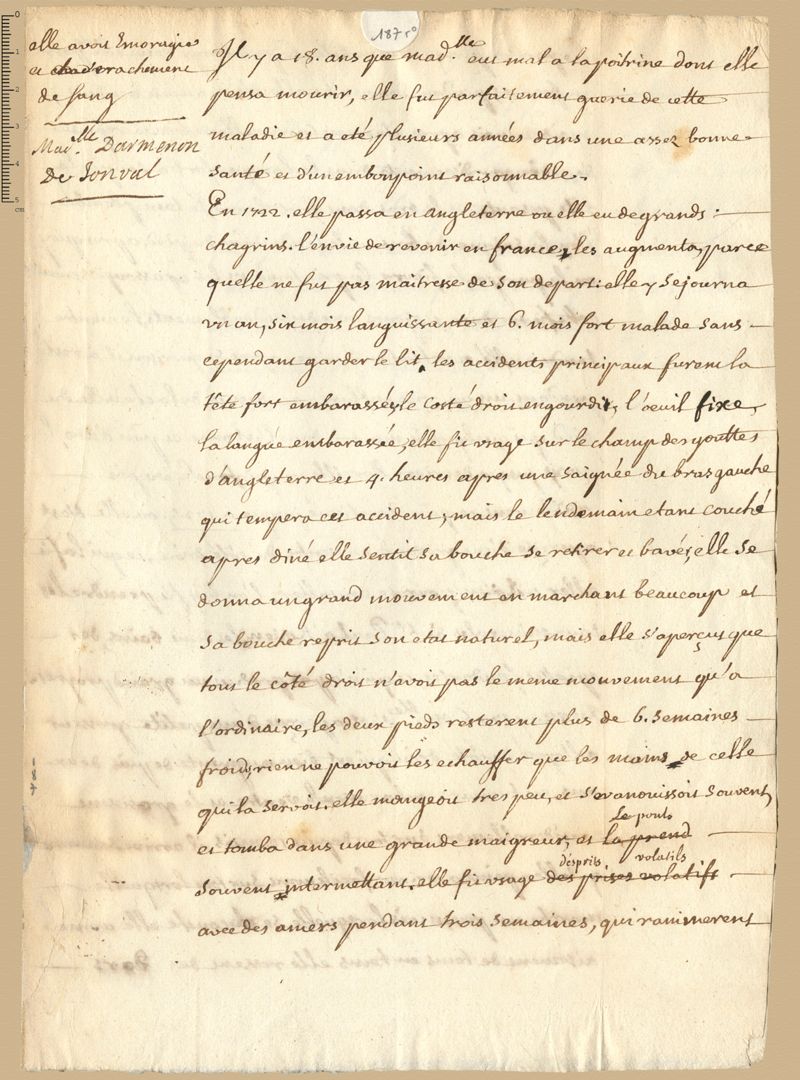 187 r°
elle avoit Emoragie
et crachement
de sang
Mad.lle Darmenon
De Jonval
Il y a 18. ans que mad.lle eut mal a la poitrine dont elle
pensa mourir, elle fut parfaitement guerie de cette
maladie et a eté plusieurs années dans une assez bonne
santé et d'un embonpoint raisonnable.
En 1722. elle passa en angleterre ou elle eu de grands
chagrins. l'envie de revenir en france, les augmenta, parce
quelle ne fut pas maitresse de son depart: elle y sejourna
un an, six mois languissante et 6. mois fort malade sans
cependant garder le lit, les accidents principaux furent la
tête fort embarassée, le costé droit engourdit, l'oeuil fixe,
la langue embarassée, elle fit usage sur le champ des gouttes
d'angleterre et 4. heures apres une saignée du bras gauche
qui tempera cet accident, mais le lendemain etant couché
apres diné elle sentit sa bouche se retirer et bavée, elle se
donna un grand mouvement en marchant beaucoup et
sa bouche reprit son etat naturel, mais elle s'aperçut que
tout le côté droit n'avoit pas le meme mouvement qu'a
l'ordinaire, les deux pieds resterent plus de 6. semaines
froids, rien ne pouvoit les echauffer que les mains de celle
qui la servoit. elle mangeoit tres peu, et s'evanouissoit souvent,
et tomba dans une grande maigreur, et la prend
Le pouls
souvent intermettant. elle fit usage des prises volatifs
d'esprits volatils
avec des amers pendant trois semaines, qui ranimerent